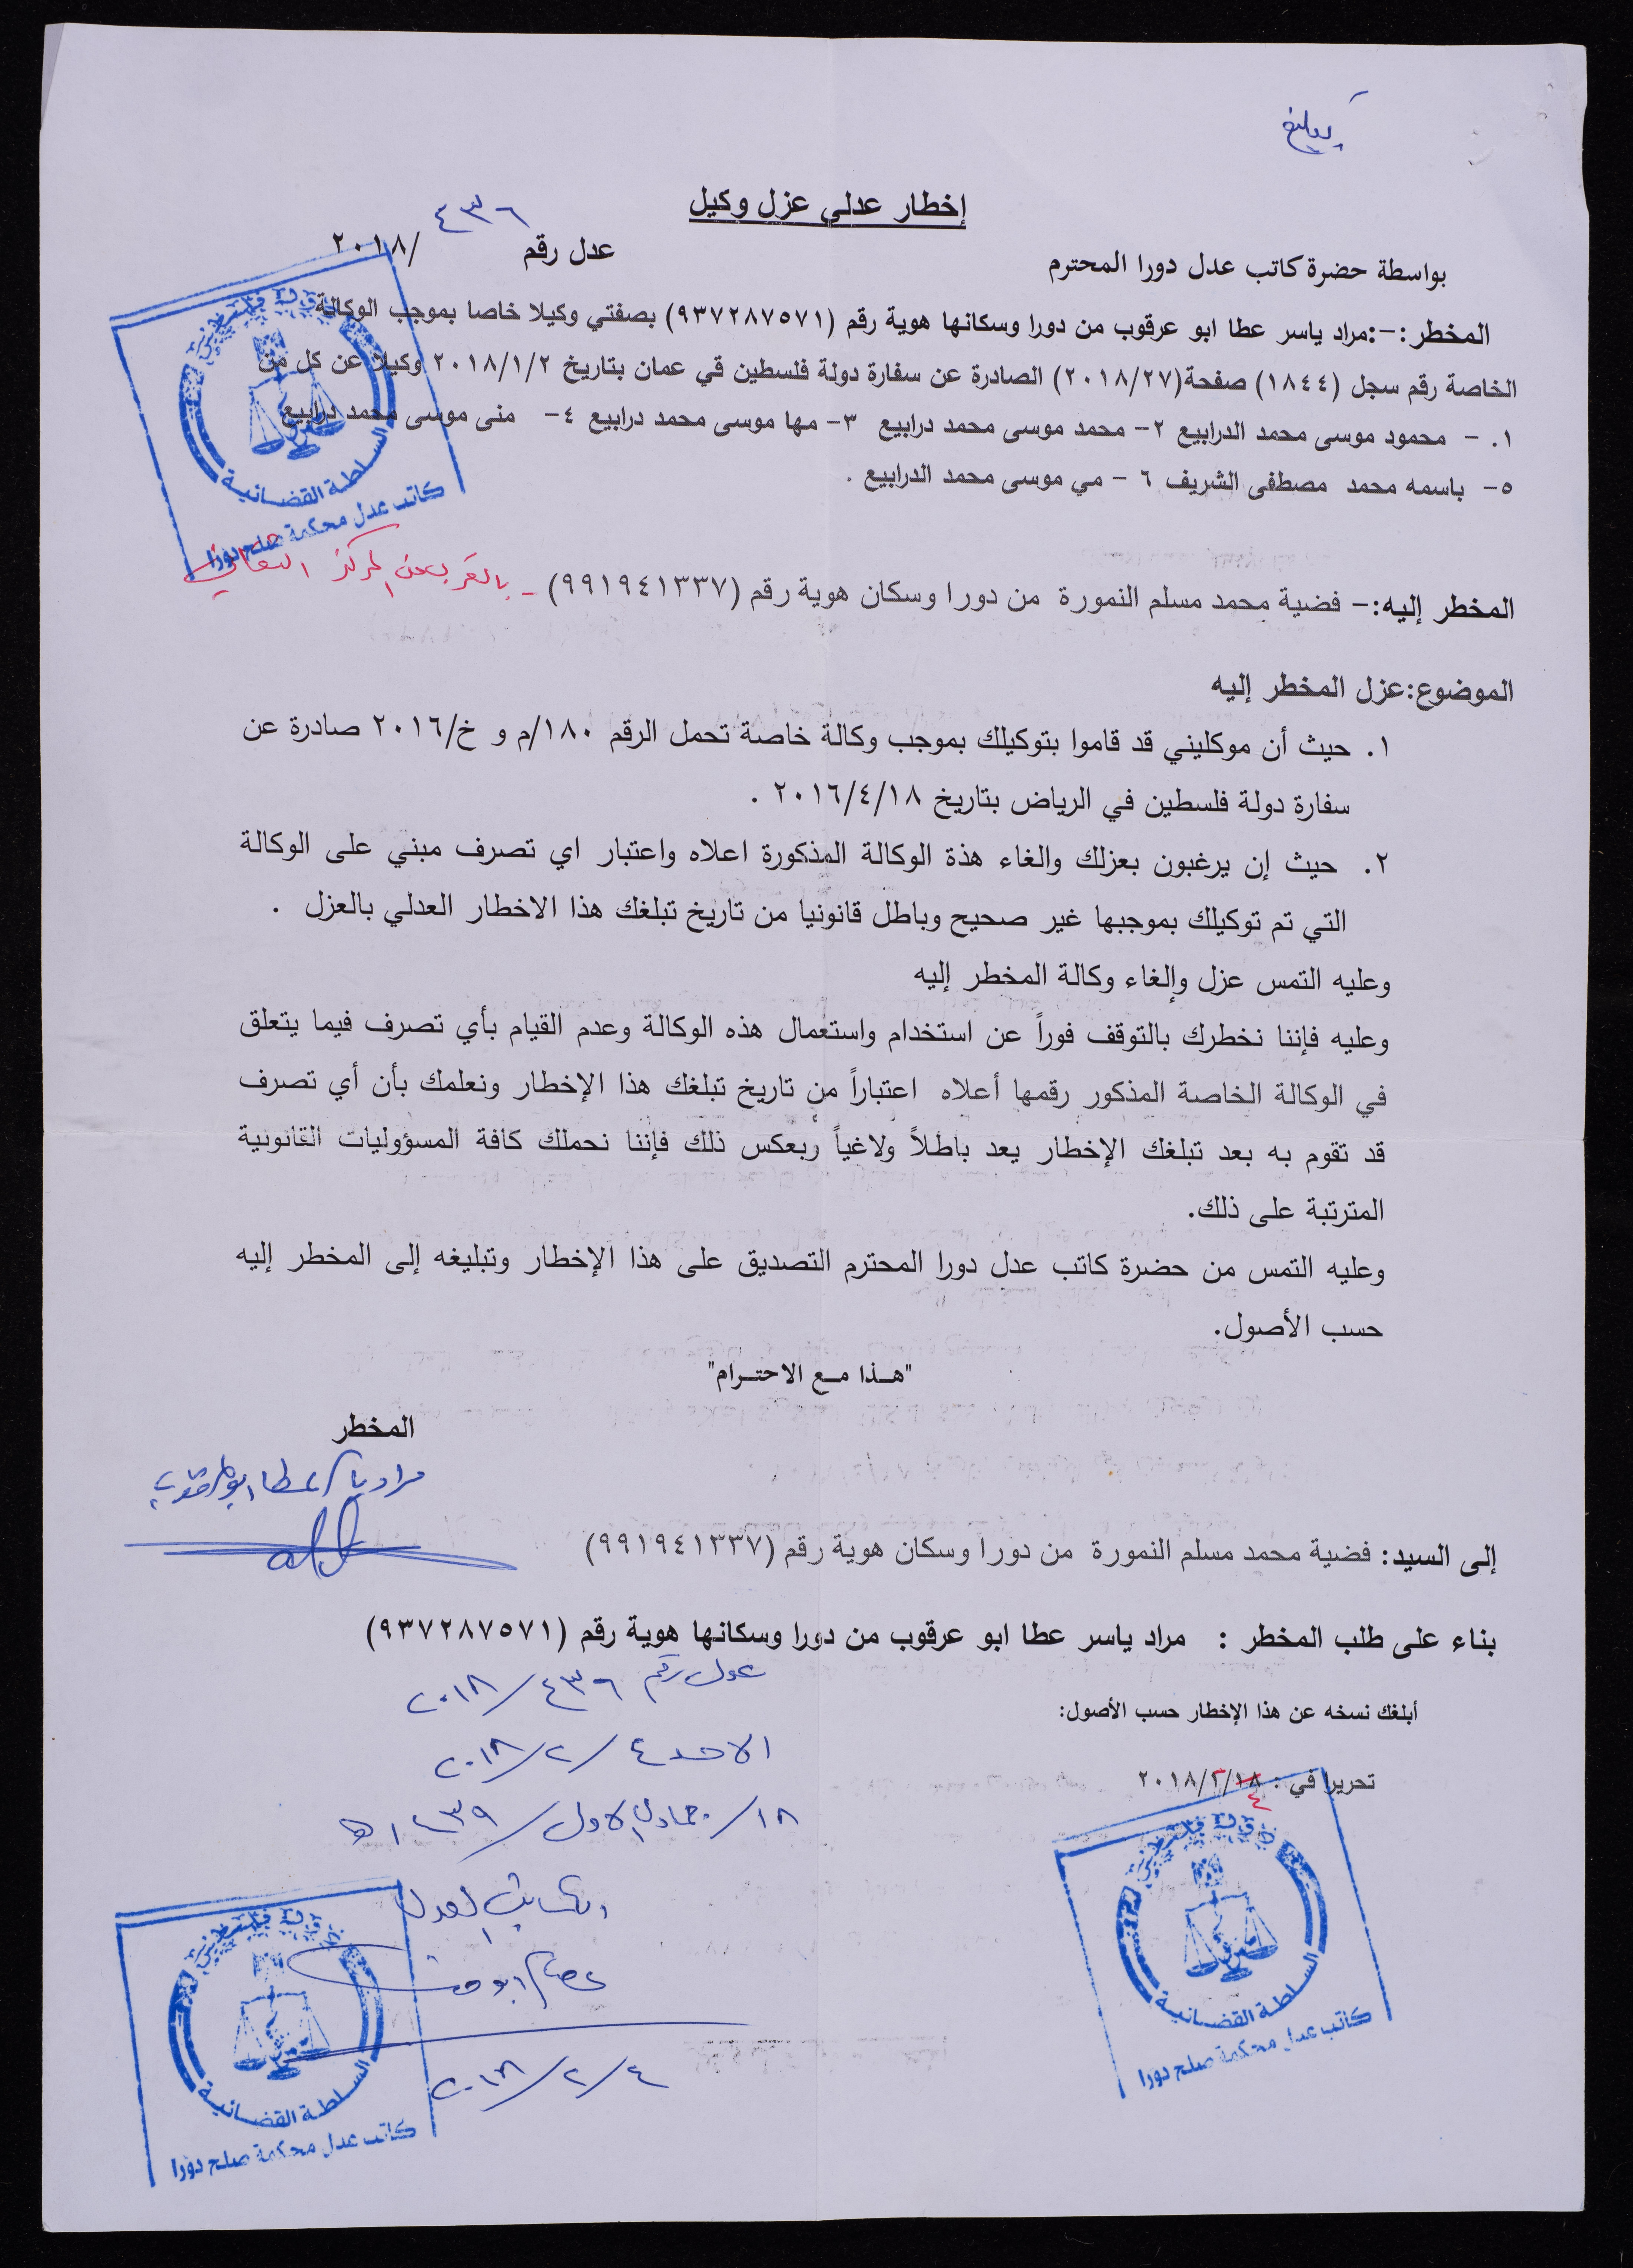 إخطار عدلي عزل وكيل
عدل رقم ٤٣٦ /٢٠١٨
بواسطة حضرة كاتب عدل دورا المحترم
المخطر: -:مراد ياسر عطا ابو عرقوب من دورا وسكانها هوية رقم (٩٣٧٢٨٧٥٧١) بصفتي وكيلا خاصا بموجب الوكالة
الخاصة رقم سجل (١٨٤٤) صفحة(٢٠١٨/٢٧) الصادرة عن سفارة دولة فلسطين في عمان بتاريخ ٢٠١٨/١/٢ وكيلا عن كل من
١. - محمود موسى محمد الدرابيع ٢- محمد موسى محمد درابيع ٣- مها موسى محمد درابيع ٤- منى موسى محمد درابيع
٥- باسمه محمد مصطفى الشريف ٦ - مي موسى محمد الدرابيع .
السلطة القضائية
كاتب عدل محكمة صلح دورا
المخطر إليه:- فضية محمد مسلم النمورة من دورا وسكان هوية رقم (٩٩١٩٤١٣٣٧) - بالقرب من المركز الثقافي
الموضوع:عزل المخطر إليه
١. حيث أن موكليني قد قاموا بتوكيلك بموجب وكالة خاصة تحمل الرقم ١٨٠/م و خ/٢٠١٦ صادرة عن
سفارة دولة فلسطين في الرياض بتاريخ ٢٠١٦/٤/١٨ .
٢. حيث إن يرغبون بعزلك والغاء هذة الوكالة المذكورة اعلاه واعتبار اي تصرف مبني على الوكالة
التي تم توكيلك بموجبها غير صحيح وباطل قانونيا من تاريخ تبلغك هذا الاخطار العدلي بالعزل .
وعليه التمس عزل وإلغاء وكالة المخطر إليه
وعليه فإننا نخطرك بالتوقف فوراً عن استخدام واستعمال هذه الوكالة وعدم القيام بأي تصرف فيما يتعلق
في الوكالة الخاصة المذكور رقمها أعلاه اعتباراً من تاريخ تبلغك هذا الإخطار ونعلمك بأن أي تصرف
قد تقوم به بعد تبلغك الإخطار يعد باطلاً ولاغياً وبعكس ذلك فإننا نحملك كافة المسؤوليات القانونية
المترتبة على ذلك.
وعليه التمس من حضرة كاتب عدل دورا المحترم التصديق على هذا الإخطار وتبليغه إلى المخطر إليه
حسب الأصول.
"هـذا مـع الاحتـرام"
المخطر
مراد ياسر عطا ابو عرقوب
إلى السيد: فضية محمد مسلم النمورة من دورا وسكان هوية رقم (٩٩١٩٤١٣٣٧)
بناء على طلب المخطر : مراد ياسر عطا ابو عرقوب من دورا وسكانها هوية رقم (٩٣٧٢٨٧٥٧١)
عدل رقم ٤٣٦/٢٠١٨
أبلغك نسخه عن هذا الإخطار حسب الأصول:
الاحد ٤/٢/٢٠١٨
تحريرا في : ١٨/٢/٢٠١٨
٤
١٨/جمادى الاول/١٤٣٩هـ
الكاتب العدل
٤/٢/٢٠١٨
السلطة القضائية
كاتب عدل محكمة صلح دورا
السلطة القضائية
كاتب عدل محكمة صلح دورا